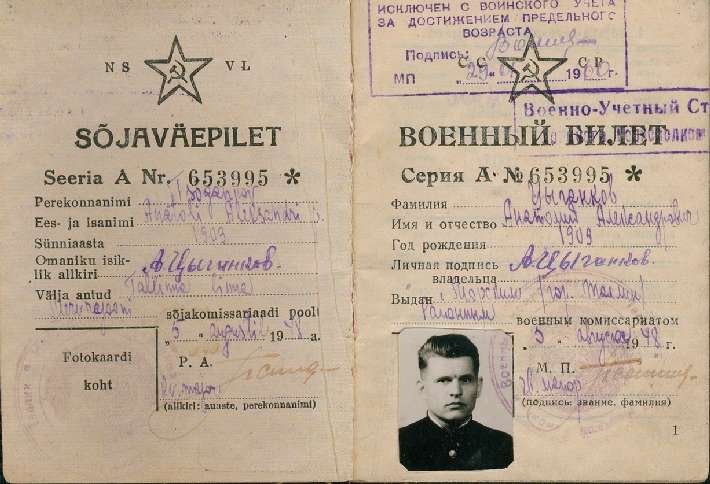 NS VL
SÕJAVÄEPILET
Seeria A Nr. 653995 *
Perekonnanimi
Ees- ja isanimi Anatoli Aleksandri
Sünniaasta 1909
Omaniku isik-
lik allkiri А.Цыганков.
Välja antud Tallinna linna
sõjakomissariaadi poolt
5 " augustil 1948 a.
Fotokaardi
koht
P. A.
(allkiri: auaste, perekonnanimi)
ИСКЛЮЧЕН С ВОИНСКОГО УЧЕТА
ЗА ДОСТИЖЕНИЕМ ПРЕДЕЛЬНОГО
ВОЗРАСТА
Подпись:
МП 1960 г.
СС СР
Военно-Учетный Ст
ВОЕННЫЙ БИЛЕТ
Серия А № 653995 *
Фамилия Цыганков
Имя и отчество Анатолий Александрович
Год рождения 1909
Личная подпись А.Цыганков.
владельца
Выдан
военным комиссариатом
5 " августа 1948 г.
М. П.
(подпись: звание, фамилия)
1